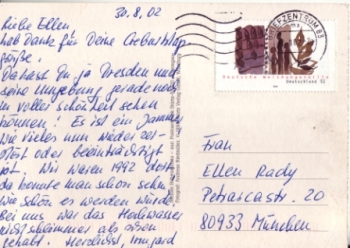 30.8.02
Liebe Ellen!
hab Dank für Deine Geburtstags
grüße.
Da hast Du ja Dresden und
seine Umgebung gerade noch
in voller Schönheit sehen
können! Es ist ein Jammer
wie vieles nun wieder zer-
stört oder beeinträchtigt
ist. Wir waren 1992 dort
da konnte man schon sehn
wie schön es werden würde.
Bei uns war das Hochwasser
nicht schlimmer als
gehabt. Herzlichst, Irmgard
BRIEFZENTRUM 83
Deutsche Welthungerhilfe
Deutschland 51
Frau
Ellen Rady
Petrarcastr. 20
80933 München